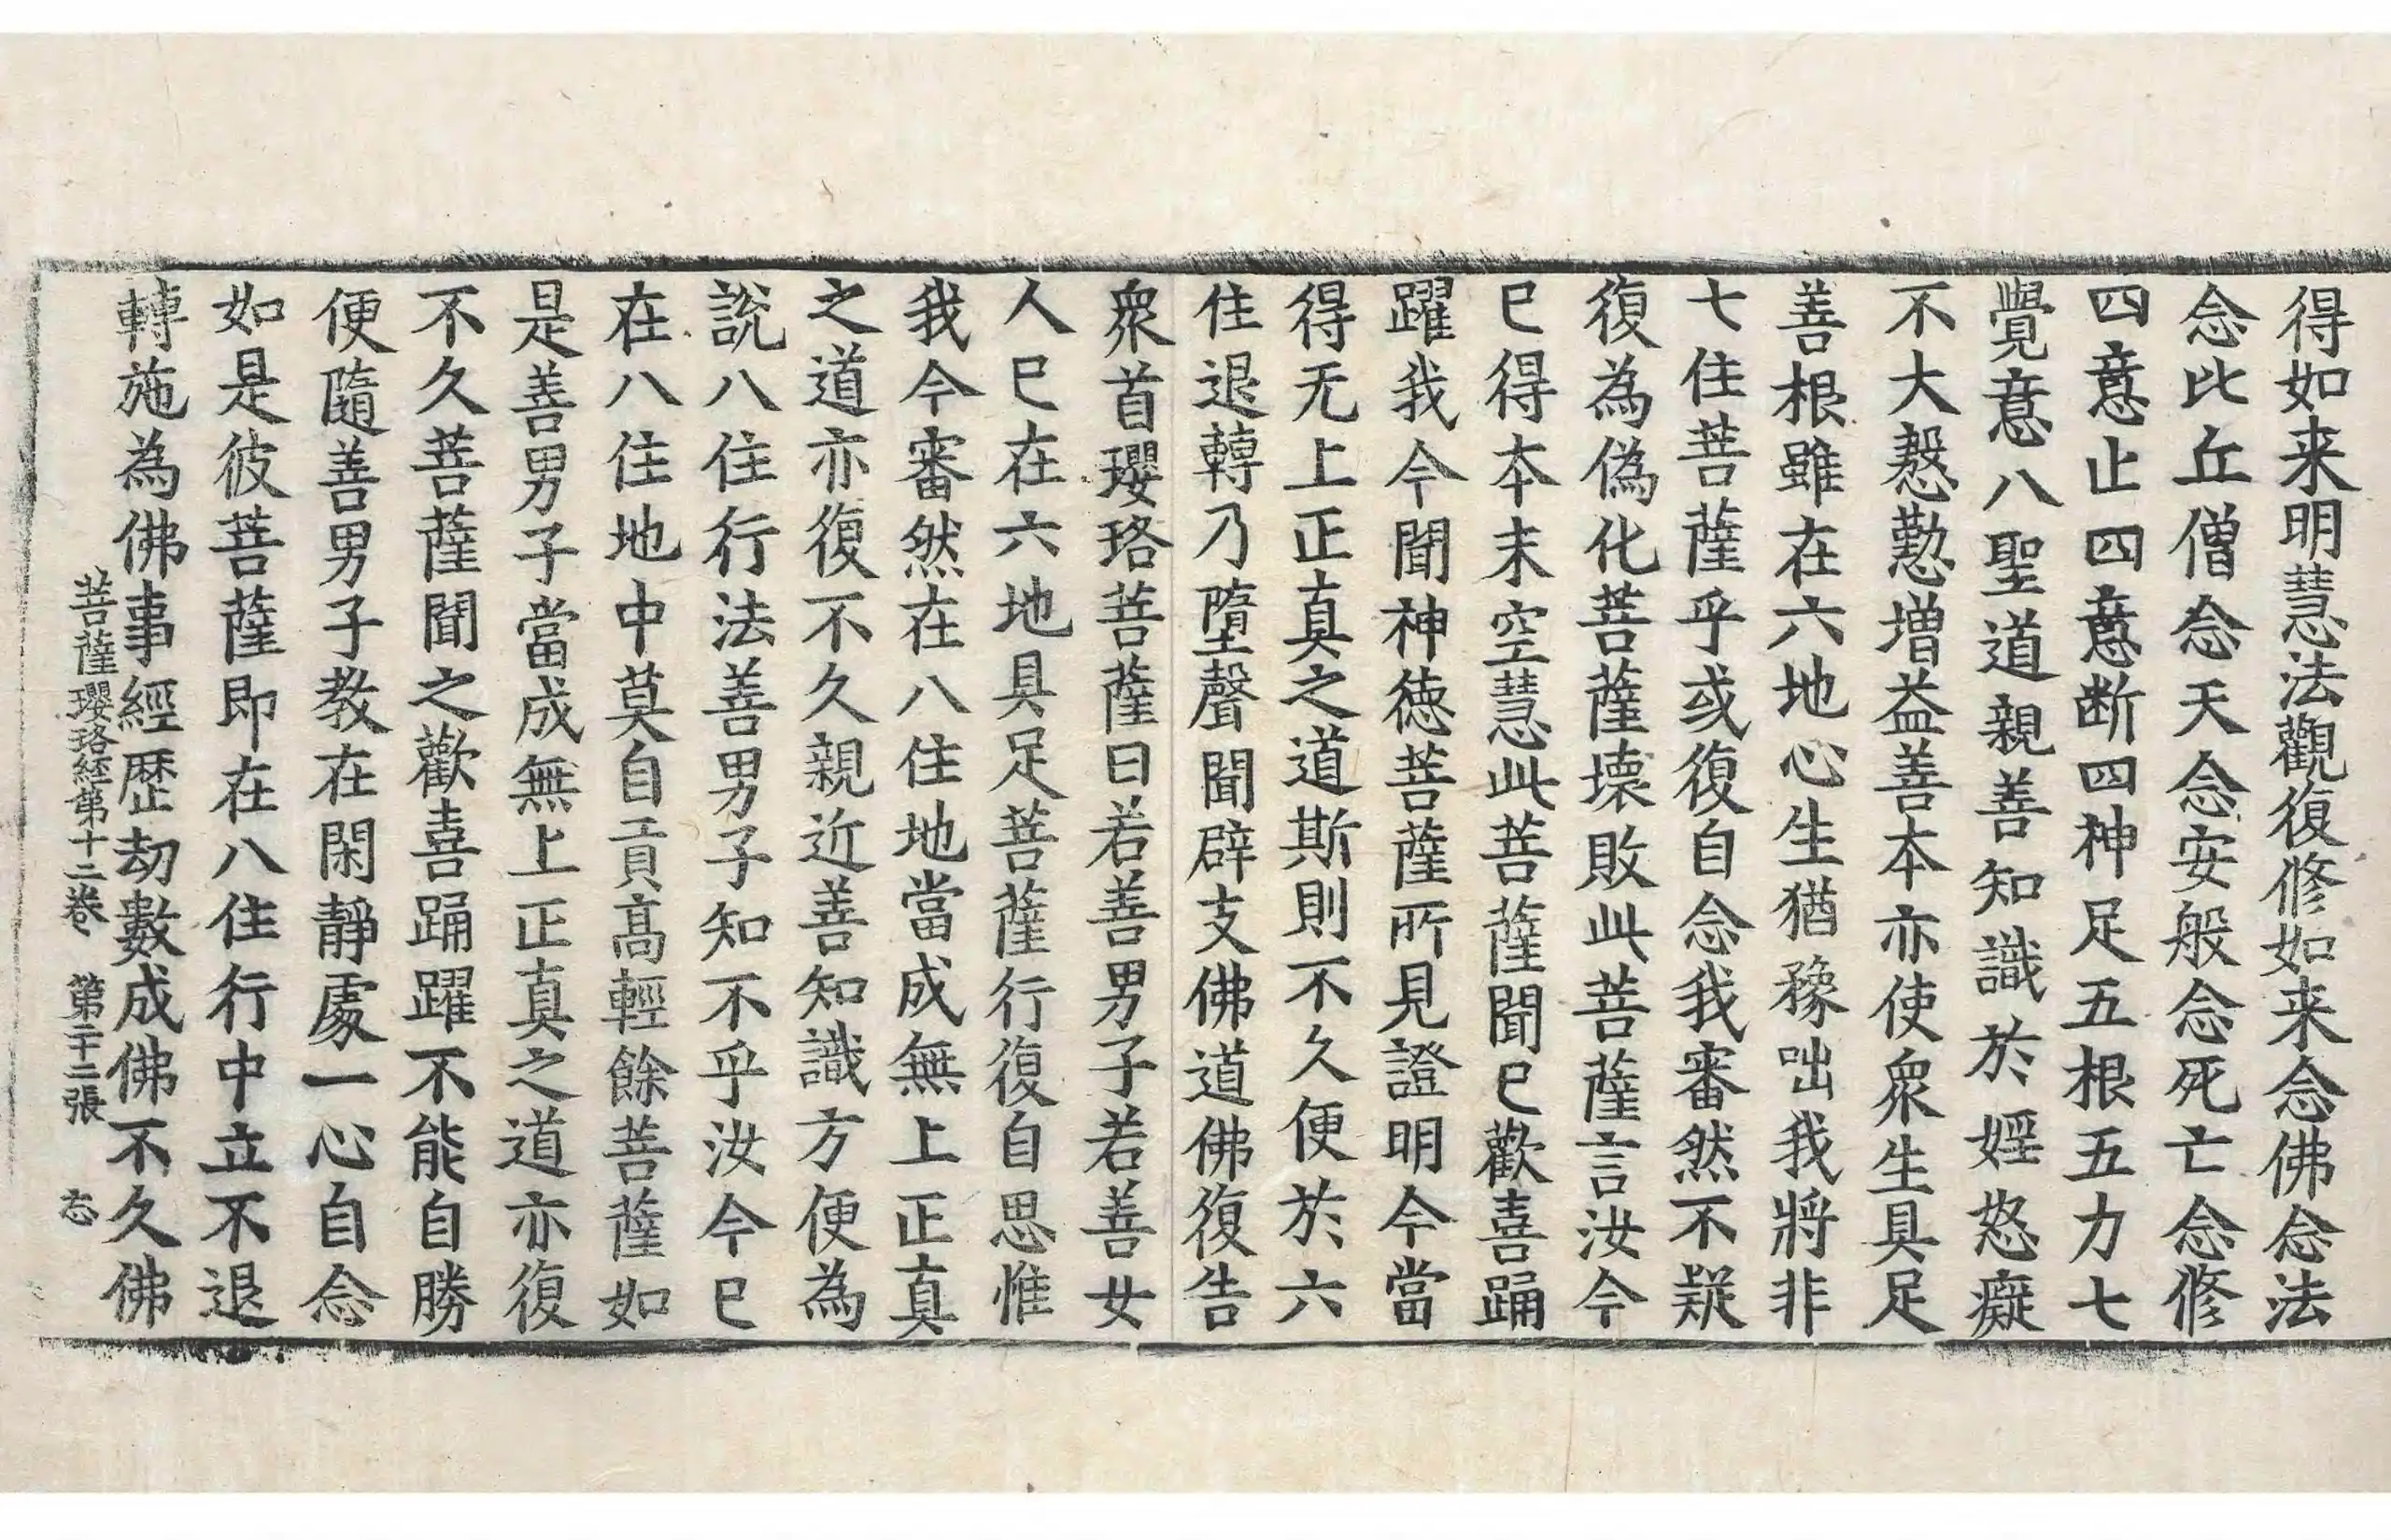 得如来明慧法觀復修如来念佛念法
念比丘僧念天念安般念死亡念修
四意止四意断四神足五根五力七
覺意八聖道親善知識於婬怒癡
不大慇懃增益善本亦使衆生具足
善根雖在六地心生猶豫咄我將非
七住菩薩乎或復自念我審然不疑
復為偽化菩薩壊敗此菩薩言汝今
已得本末空慧此菩薩聞已歡喜踊
躍我今聞神德菩薩所見證明今當
得无上正真之道斯則不久便於六
住退轉乃墮聲聞辟支佛道佛復告
衆首瓔珞菩薩曰若善男子若善女
人已在六地具足菩薩行復自思惟
我今審然在八住地當成無上正真
之道亦復不久親近善知識方便為
說八住行法善男子知不乎汝今已
在八住地中莫自貢髙輕餘菩薩如
是善男子當成無上正真之道亦復
不久菩薩聞之歡喜踊躍不能自勝
便隨善男子教在閑靜處一心自念
如是彼菩薩即在八住行中立不退
轉施為佛事經歷劫數成佛不久佛
菩薩瓔珞経第十二卷 第二十二張 志